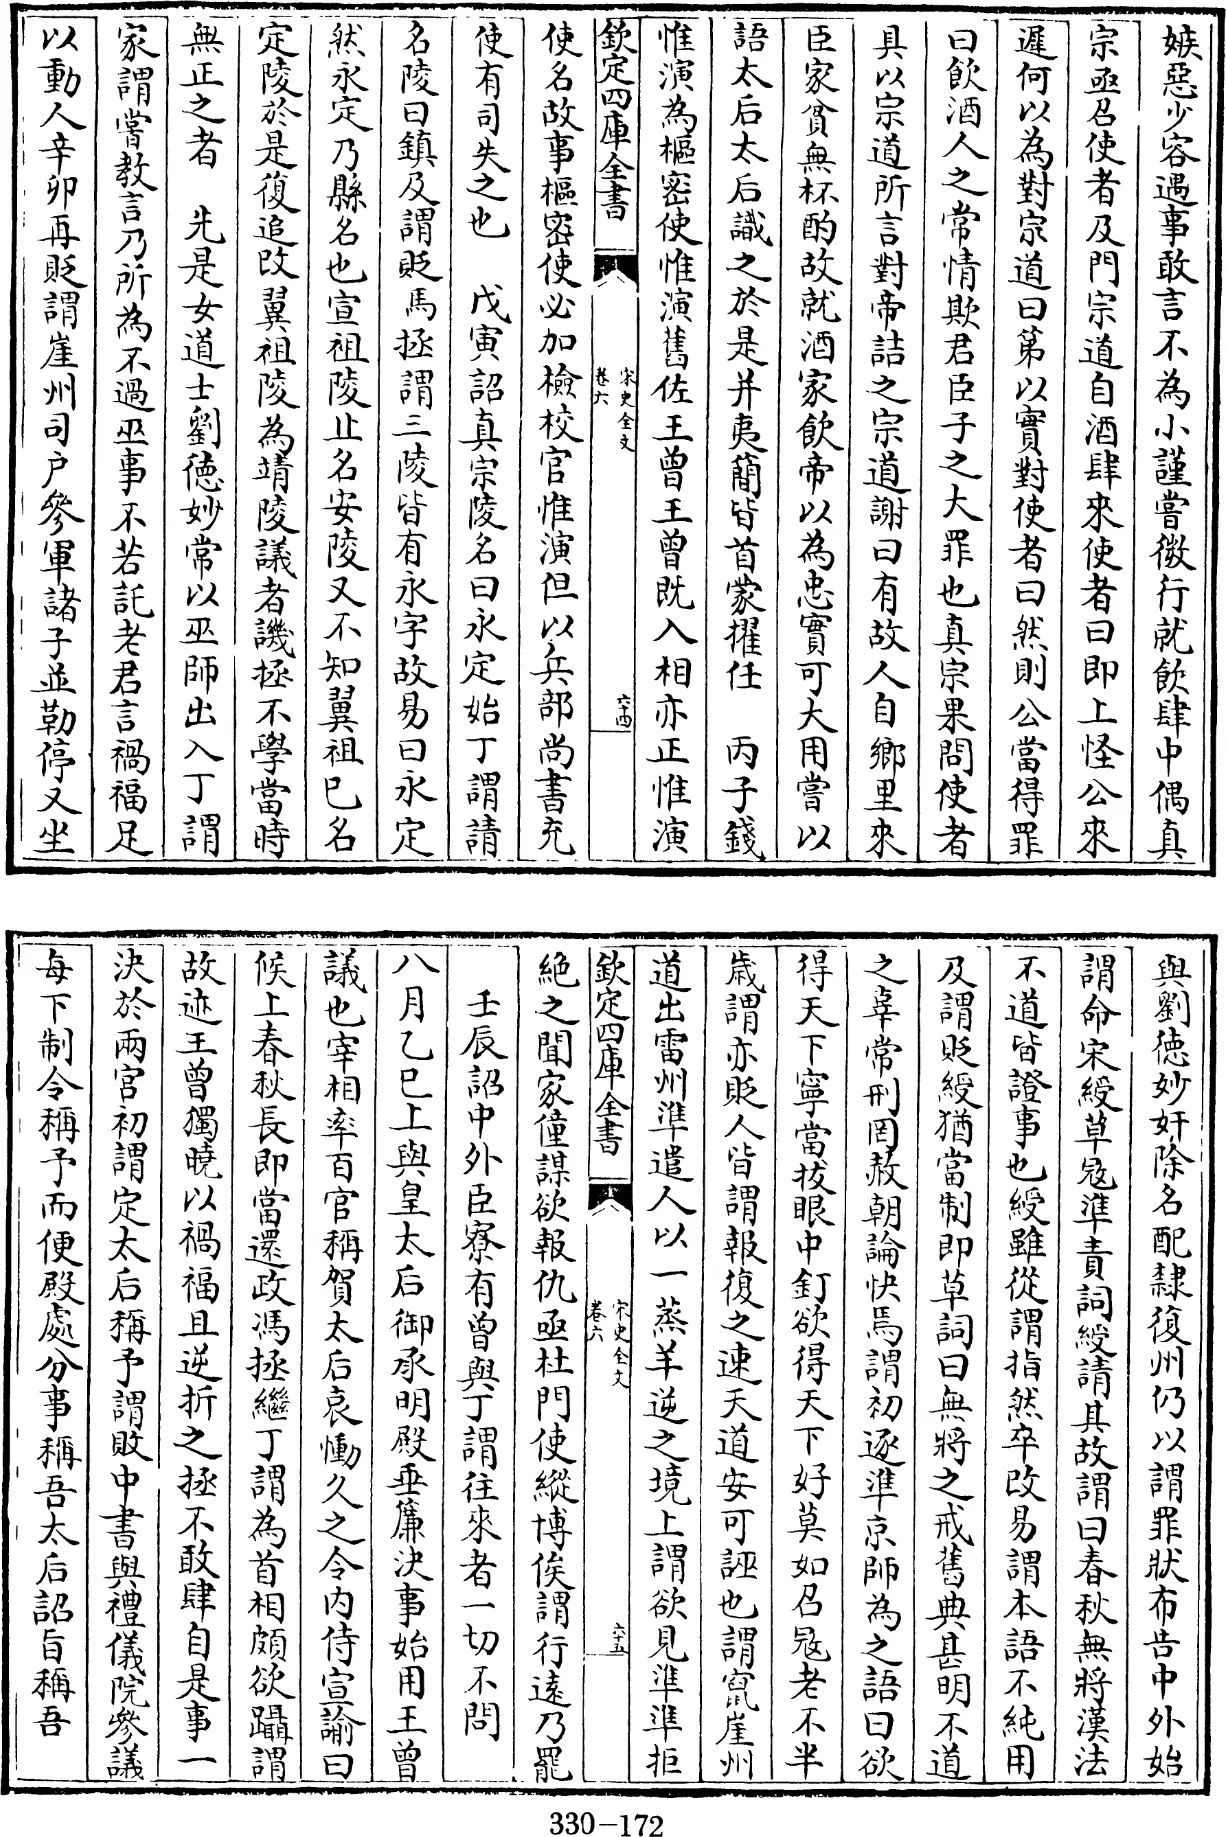 嫉惡少容遇事敢言不為小謹嘗微行就飲肆中偶真
宗亟召使者及門宗道自酒肆來使者曰即上怪公來
遲何以為對宗道曰第以實對使者曰然則公當得罪
曰飲酒人之常情欺君臣子之大罪也真宗果問使者
具以宗道所言對帝詰之宗道謝曰有故人自鄉里來
臣家貧無杯酌故就酒家飲帝以為忠實可大用嘗以
語太后太后識之於是并夷簡皆首蒙擢任　丙子錢
惟演為樞密使惟演舊佐王曾王曾既入相亦正惟演
欽定四庫全書　宋史全文卷六　六十四
使名故事樞密使必加檢校官惟演但以兵部尚書充
使有司失之也　戊寅詔真宗陵名曰永定始丁謂請
名陵曰鎮及謂貶馬拯謂三陵皆有永字故易曰永定
然永定乃縣名也宣祖陵止名安陵又不知翼祖已名
定陵於是復追改翼祖陵為靖陵議者譏拯不學當時
無正之者　先是女道士劉德妙常以巫師出入丁謂
家謂嘗教言乃所為不過巫事不若託老君言禍福足
以動人辛卯再貶謂崖州司户參軍諸子並勒停又坐
與劉德妙奸除名配隸復州仍以謂罪狀布告中外始
謂命宋綬草寇準責詞綬請其故謂曰春秋無將漢法
不道皆證事也綬雖從謂指然卒改易謂本語不純用
及謂貶綬猶當制即草詞曰無將之戒舊典甚明不道
之辜常刑罔赦朝論快焉謂初逐準京師為之語曰欲
得天下寧當拔眼中釘欲得天下好莫如召寇老不半
歲謂亦貶人皆謂報復之速天道安可誣也謂竄崖州
道出雷州準遣人以一蒸羊逆之境上謂欲見準準拒
欽定四庫全書　宋史全文卷六　六十五
絶之聞家僮謀欲報仇亟杜門使縱博俟謂行遠乃罷
壬辰詔中外臣寮有曾與丁謂往來者一切不問
八月乙巳上與皇太后御承明殿垂簾決事始用王曾
議也宰相率百官稱賀太后哀慟久之令内侍宣諭曰
候上春秋長即當還政馮拯繼丁謂為首相頗欲躡謂
故迹王曾獨曉以禍福且逆折之拯不敢肆自是事一
決於兩宫初謂定太后稱予謂敗中書與禮儀院參議
每下制令稱予而便殿處分事稱吾太后詔旨稱吾
330-172